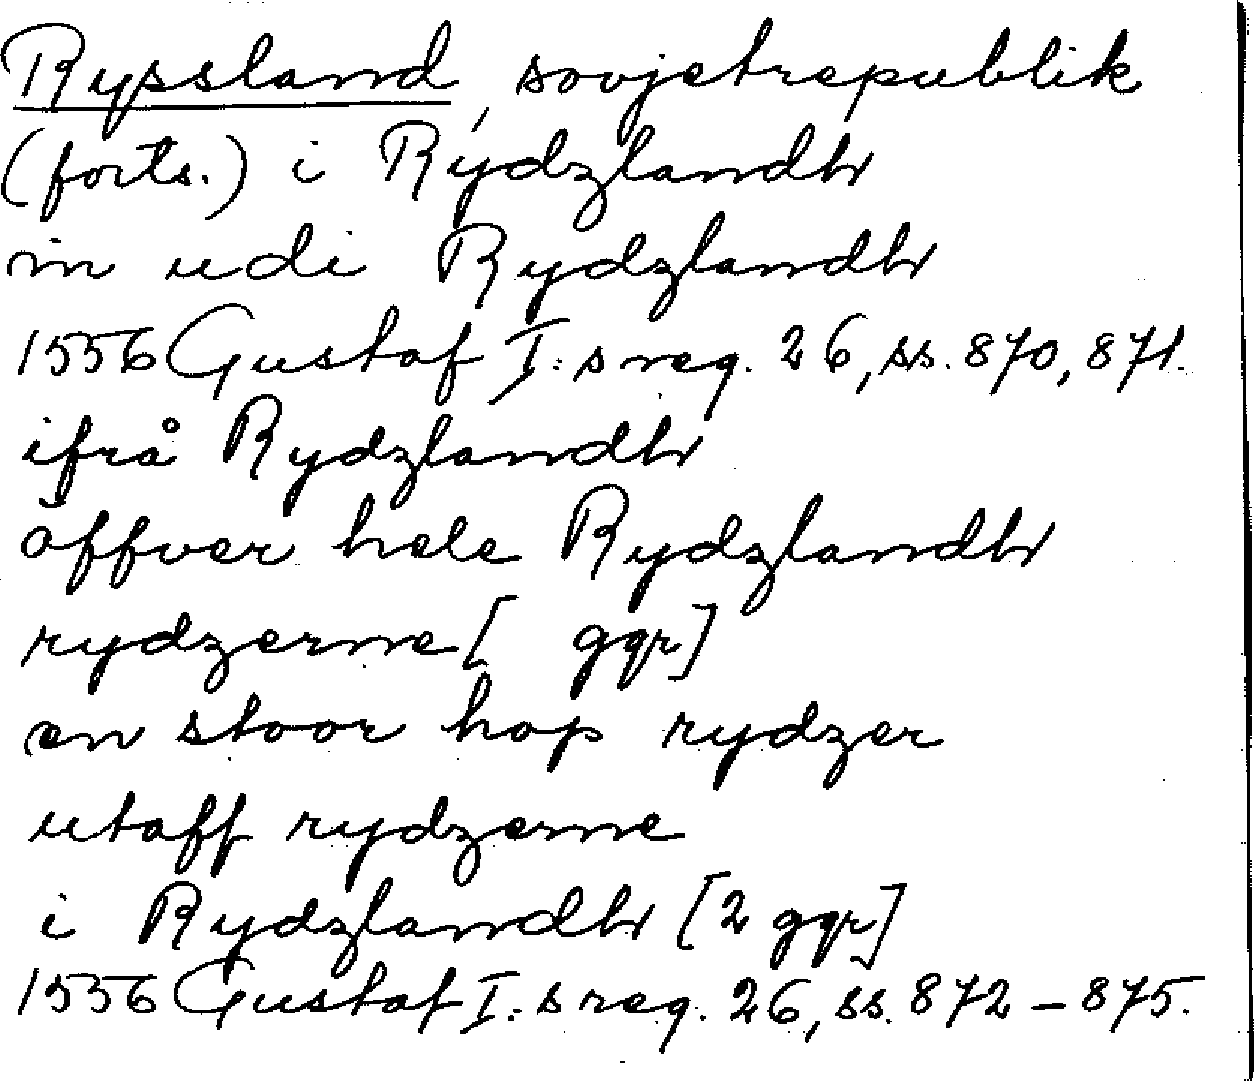 Ryssland, sovjetrepublik
(forts.) i Rydzlandh
in udi Rydzlandh
1556 Gustaf I:s reg. 26, ss. 870, 871.
ifrå Rydzlandh
öffver hele Rydzlandh
rydzerne [ ggr]
en stoor hop rydzer
utaff rydzerne
i Rydzlandh [2 ggr]
1556 Gustaf I:s reg. 26, ss. 872–875.